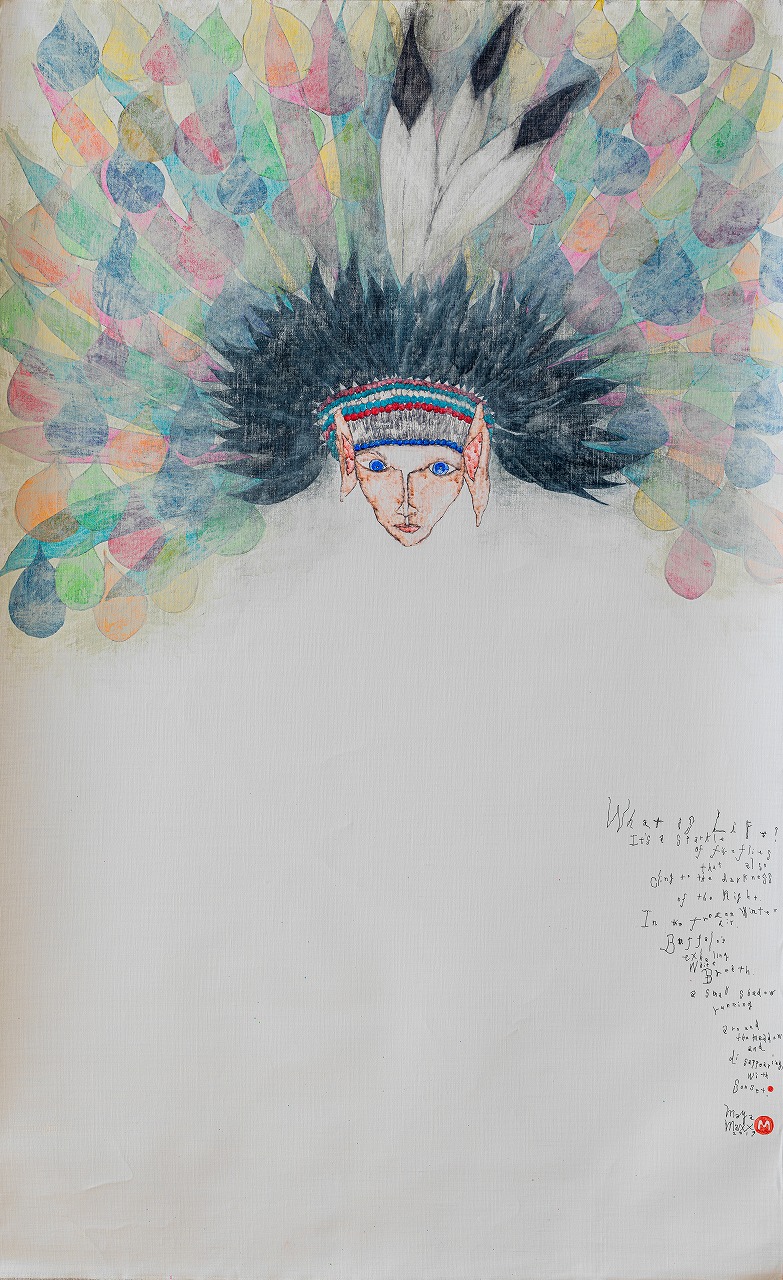 What is Life?
It's a sparkle
of fireflies
that also
cling to the darkness
of the Night.
In the frozen Winter
air.
Buffalo's
exhaling
White
Breath.
a small shadow
running
around
the meadow
and
disappearing
with
Sunset.
Maya
Maxx
2019
M